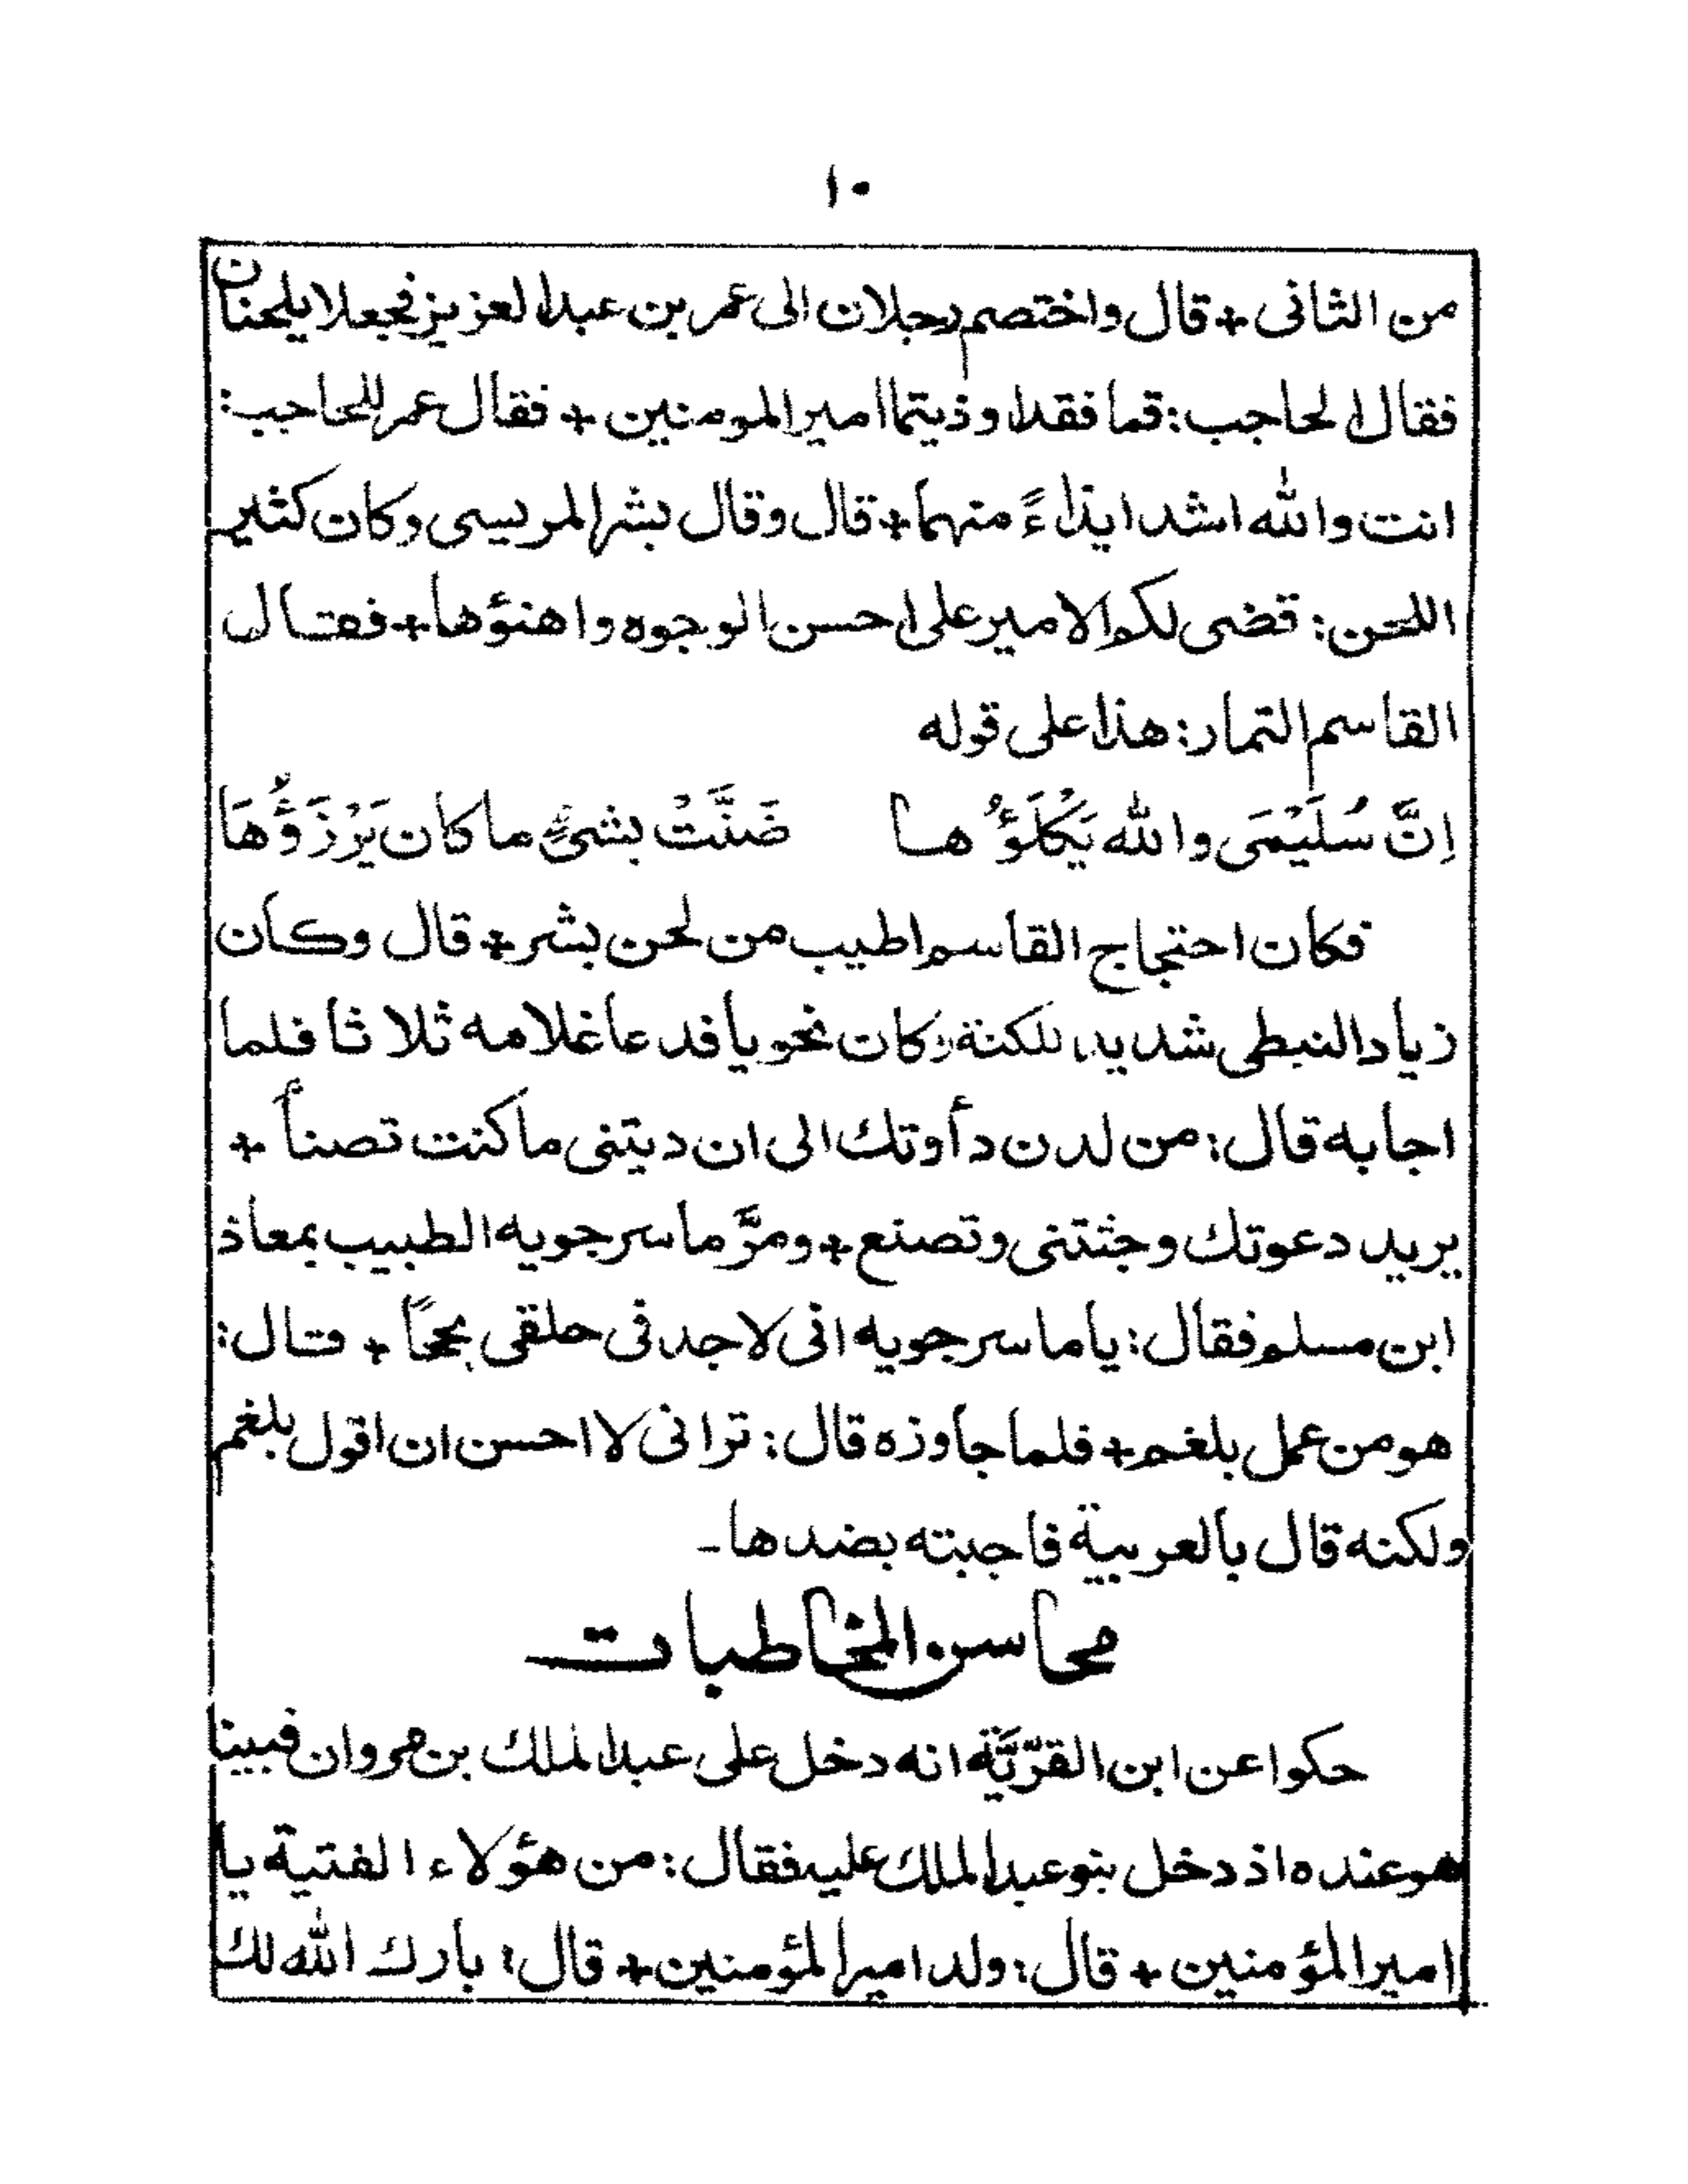 ١٠
من الثانى + قال واختصم رجلان الى عمر بن عبد العزيز فجعلا يلحنان
فقال الحاجب: قما فقد اوذيتما امير المومنين + فقال عمر للحاجب:
انت والله اشد ايذاءً منهما + قال وقال بشر المريسى وكان كثير
اللحن: قضى لكم الامير على احسن الوجوه واهنؤها + فقال
القاسم التمار: هذا على قوله
اِنَّ سُلَيْمَى والله يَكْلَؤُها ضَنَّتْ بشىءٍ ما كان يَرْزَؤُهَا
فكان احتجاج القاسم اطيب من لحن بشر + قال وكان
زياد النبطى شديد اللكنة وكان نحويا فدعا غلامه ثلاثا فلما
اجابه قال: من لدن دأوتك الى ان ديتنى ما كنت تصنأ +
يريد دعوتك وجئتنى وتصنع + ومرَّ ماسرجويه الطبيب بمعاذ
ابن مسلم فقال: يا ماسرجويه انى لاجد فى حلقى بححًا + قال:
هو من عمل بلغم + فلما جاوزه قال: ترانى لا احسن ان اقول بلغم
ولكنه قال بالعربية فاجبته بضدها۔
محاسن المخاطبات
حكوا عن ابن القرّيَّة انه دخل على عبد الملك بن مروان فبينا
هو عنده اذ دخل بنو عبد الملك عليه فقال: من هؤلاء الفتية يا
امير المؤمنين + قال: ولد امير المؤمنين + قال: بارك الله لك